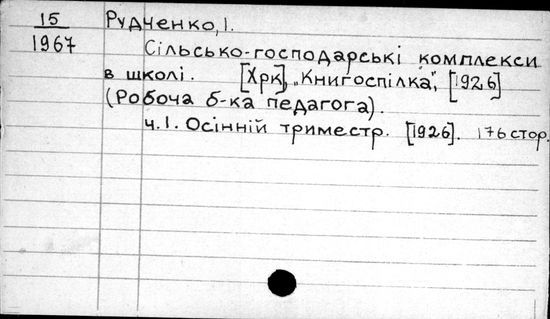 15
1967
Рудченко, І.
Сільсько-господарські комплекси
в школі. [Хрк], "Книгоспілка", [1926]
(Робоча б-ка педагога).
ч.1. Осінній триместр. [1926]. 176 стор.